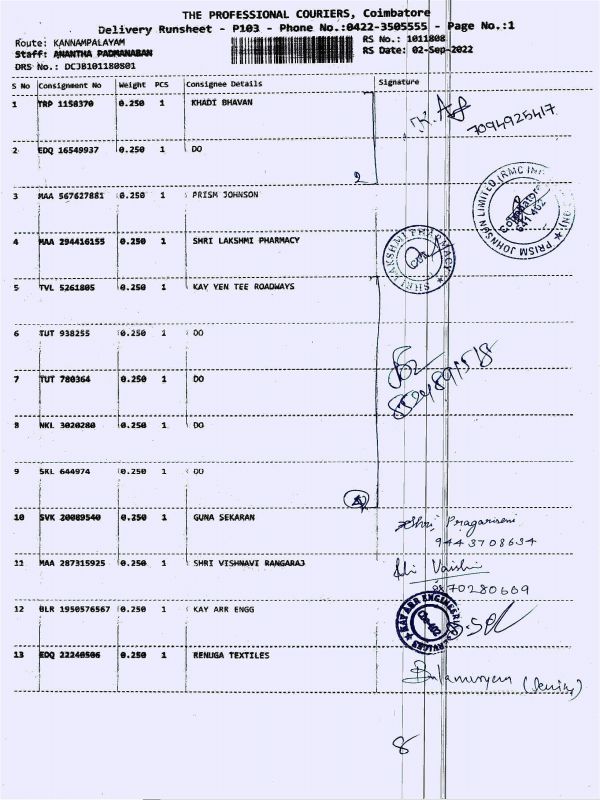 THE PROFESSIONAL COURIERS, Coimbatore
Delivery Runsheet - P103 - Phone No.:0422-3505555 - Page No.:1
Route: KANNAMPALAYAM
RS No.: 1011808
Staff: ANANTHA PADMANABAN
RS Date: 02-Sep-2022
DRS No.: DCJB101180801
S No Consignment No Weight PCS Consignee Details Signature
1 TRP 1158370 0.250 1 KHADI BHAVAN
7094925417
2 EDQ 16549937 0.250 1 DO
2
3 MAA 567627881 0.250 1 PRISM JOHNSON
PRISM JOHNSON LIMITED (RMC
4 MAA 294416155 0.250 1 SHRI LAKSHMI PHARMACY
SHRI LAKSHMI PHARMACY
5 TVL 5261805 0.250 1 KAY YEN TEE ROADWAYS
6 TUT 938255 0.250 1 DO
7 TUT 780364 0.250 1 DO
8 NKL 3020280 0.250 1 DO
9 SKL 644974 0.250 1 DO
10 SVK 20089540 0.250 1 GUNA SEKARAN
9443708634
11 MAA 287315925 0.250 1 SHRI VISHNAVI RANGARAJ
12 BLR 1950576567 0.250 1 KAY ARR ENGG
KAY ARR ENGINEERING SERVICES
13 EDQ 22240506 0.250 1 RENUGA TEXTILES
8